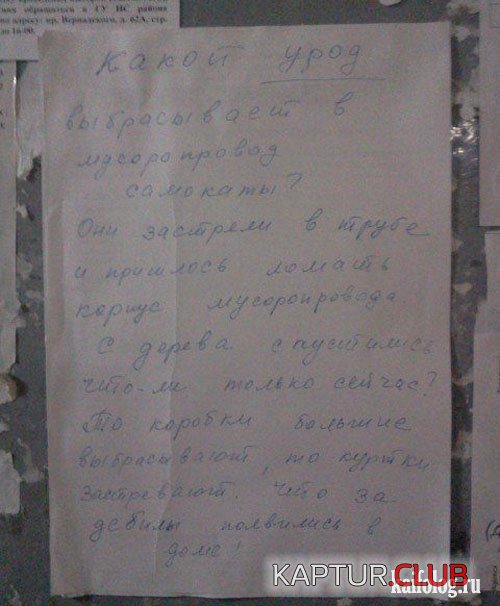 тиях обращаться в ГУ ИС района
по адресу: пр. Вернадского, д. 62А, стр.
до 16-00.
Какой урод
выбрасывает в
мусоропровад
самокаты?
Они застряли в трубе
и пришлось ломать
корпус мусоропровода
С дерева спустились
что-ли только сейчас?
То коробки большие
выбрасывают, то куртки
застревают. Что за
дебилы появились в
доме!
KAPTUR.CLUB
kaifolog.ru